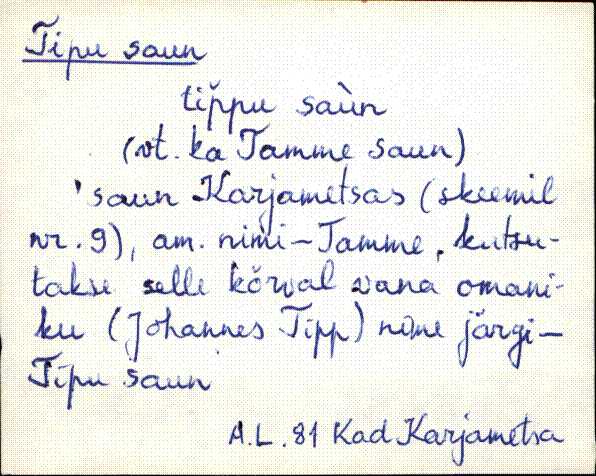 Tipu saun
tip̆pu saùn
(vt. ka Tamme saun)
'saun Karjametsas (skeemil
nr. 9), am. nimi – Tamme, kutsu-
takse selle kõrval vana omani-
ku (Johannes Tipp) nime järgi –
Tipu saun
A.L. 81 Kad Karjametsa